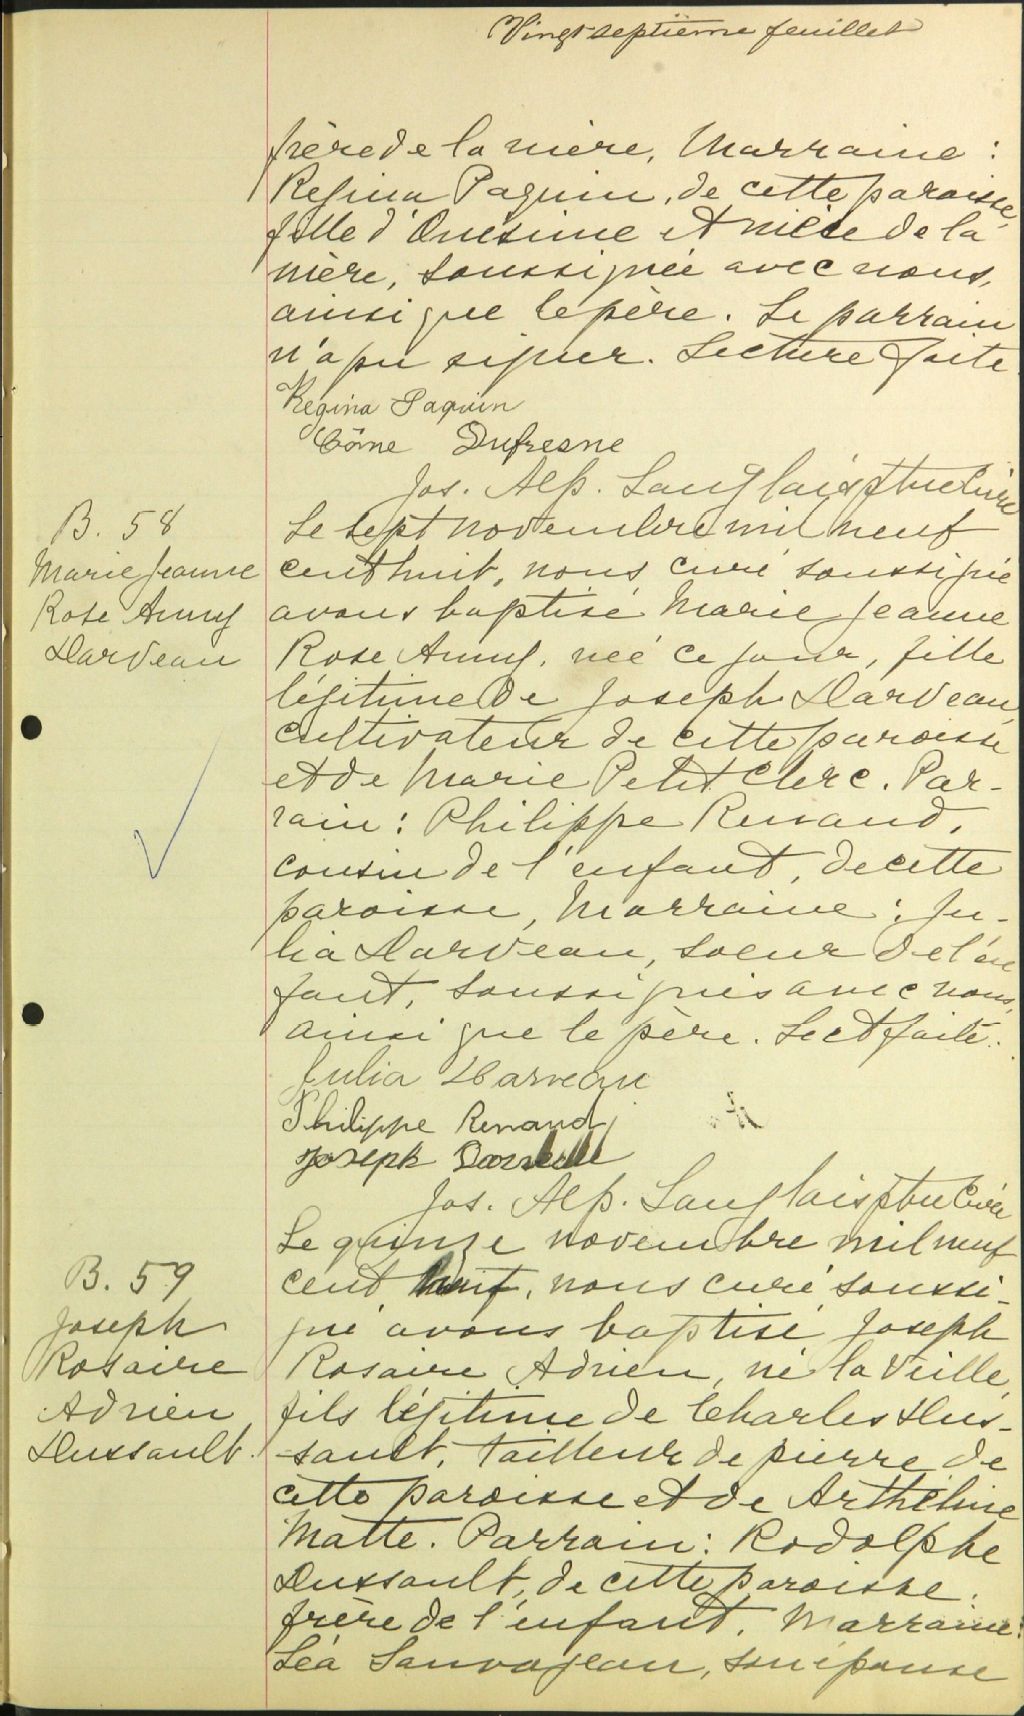 Vingt septième feuillet
frère de la mère, Marraine :
Regina Paquin, de cette paroisse,
fille d'Onésime et nièce de la
mère, soussignée avec nous,
ainsi que le père. Le parrain
n'a pu signer. Lecture faite.
Regina Paquin
Côme Dufresne
Jos. Alp. Langlais ptre Curé
B. 58
Marie Jeanne
Rose Anny
Darveau
Le sept novembre mil neuf
cent huit, nous curé soussigné
avons baptisé Marie Jeanne
Rose Anny, née ce jour, fille
légitime de Joseph Darveau,
cultivateur de cette paroisse
et de Marie Petit Clerc. Par-
rain : Philippe Renaud,
cousin de l'enfant, de cette
paroisse, Marraine : Ju-
lia Darveau, soeur de l'en
fant, soussignés avec nous,
ainsi que le père. Lect faite.
Julia Darveau
Philippe Renaud
Joseph Darveau
Jos. Alp. Langlais ptre Curé
B. 59
Joseph
Rosaire
Adrien
Dussault.
Le quinze novembre mil neuf
cent huit, nous curé soussi-
gné avons baptisé Joseph
Rosaire Adrien, né la veille,
fils légitime de Charles Dus-
sault, tailleur de pierre de
cette paroisse et de Arthéline
Matte. Parrain : Rodolphe
Dussault, de cette paroisse,
frère de l'enfant. Marraine :
Léa Sauvageau, son épouse